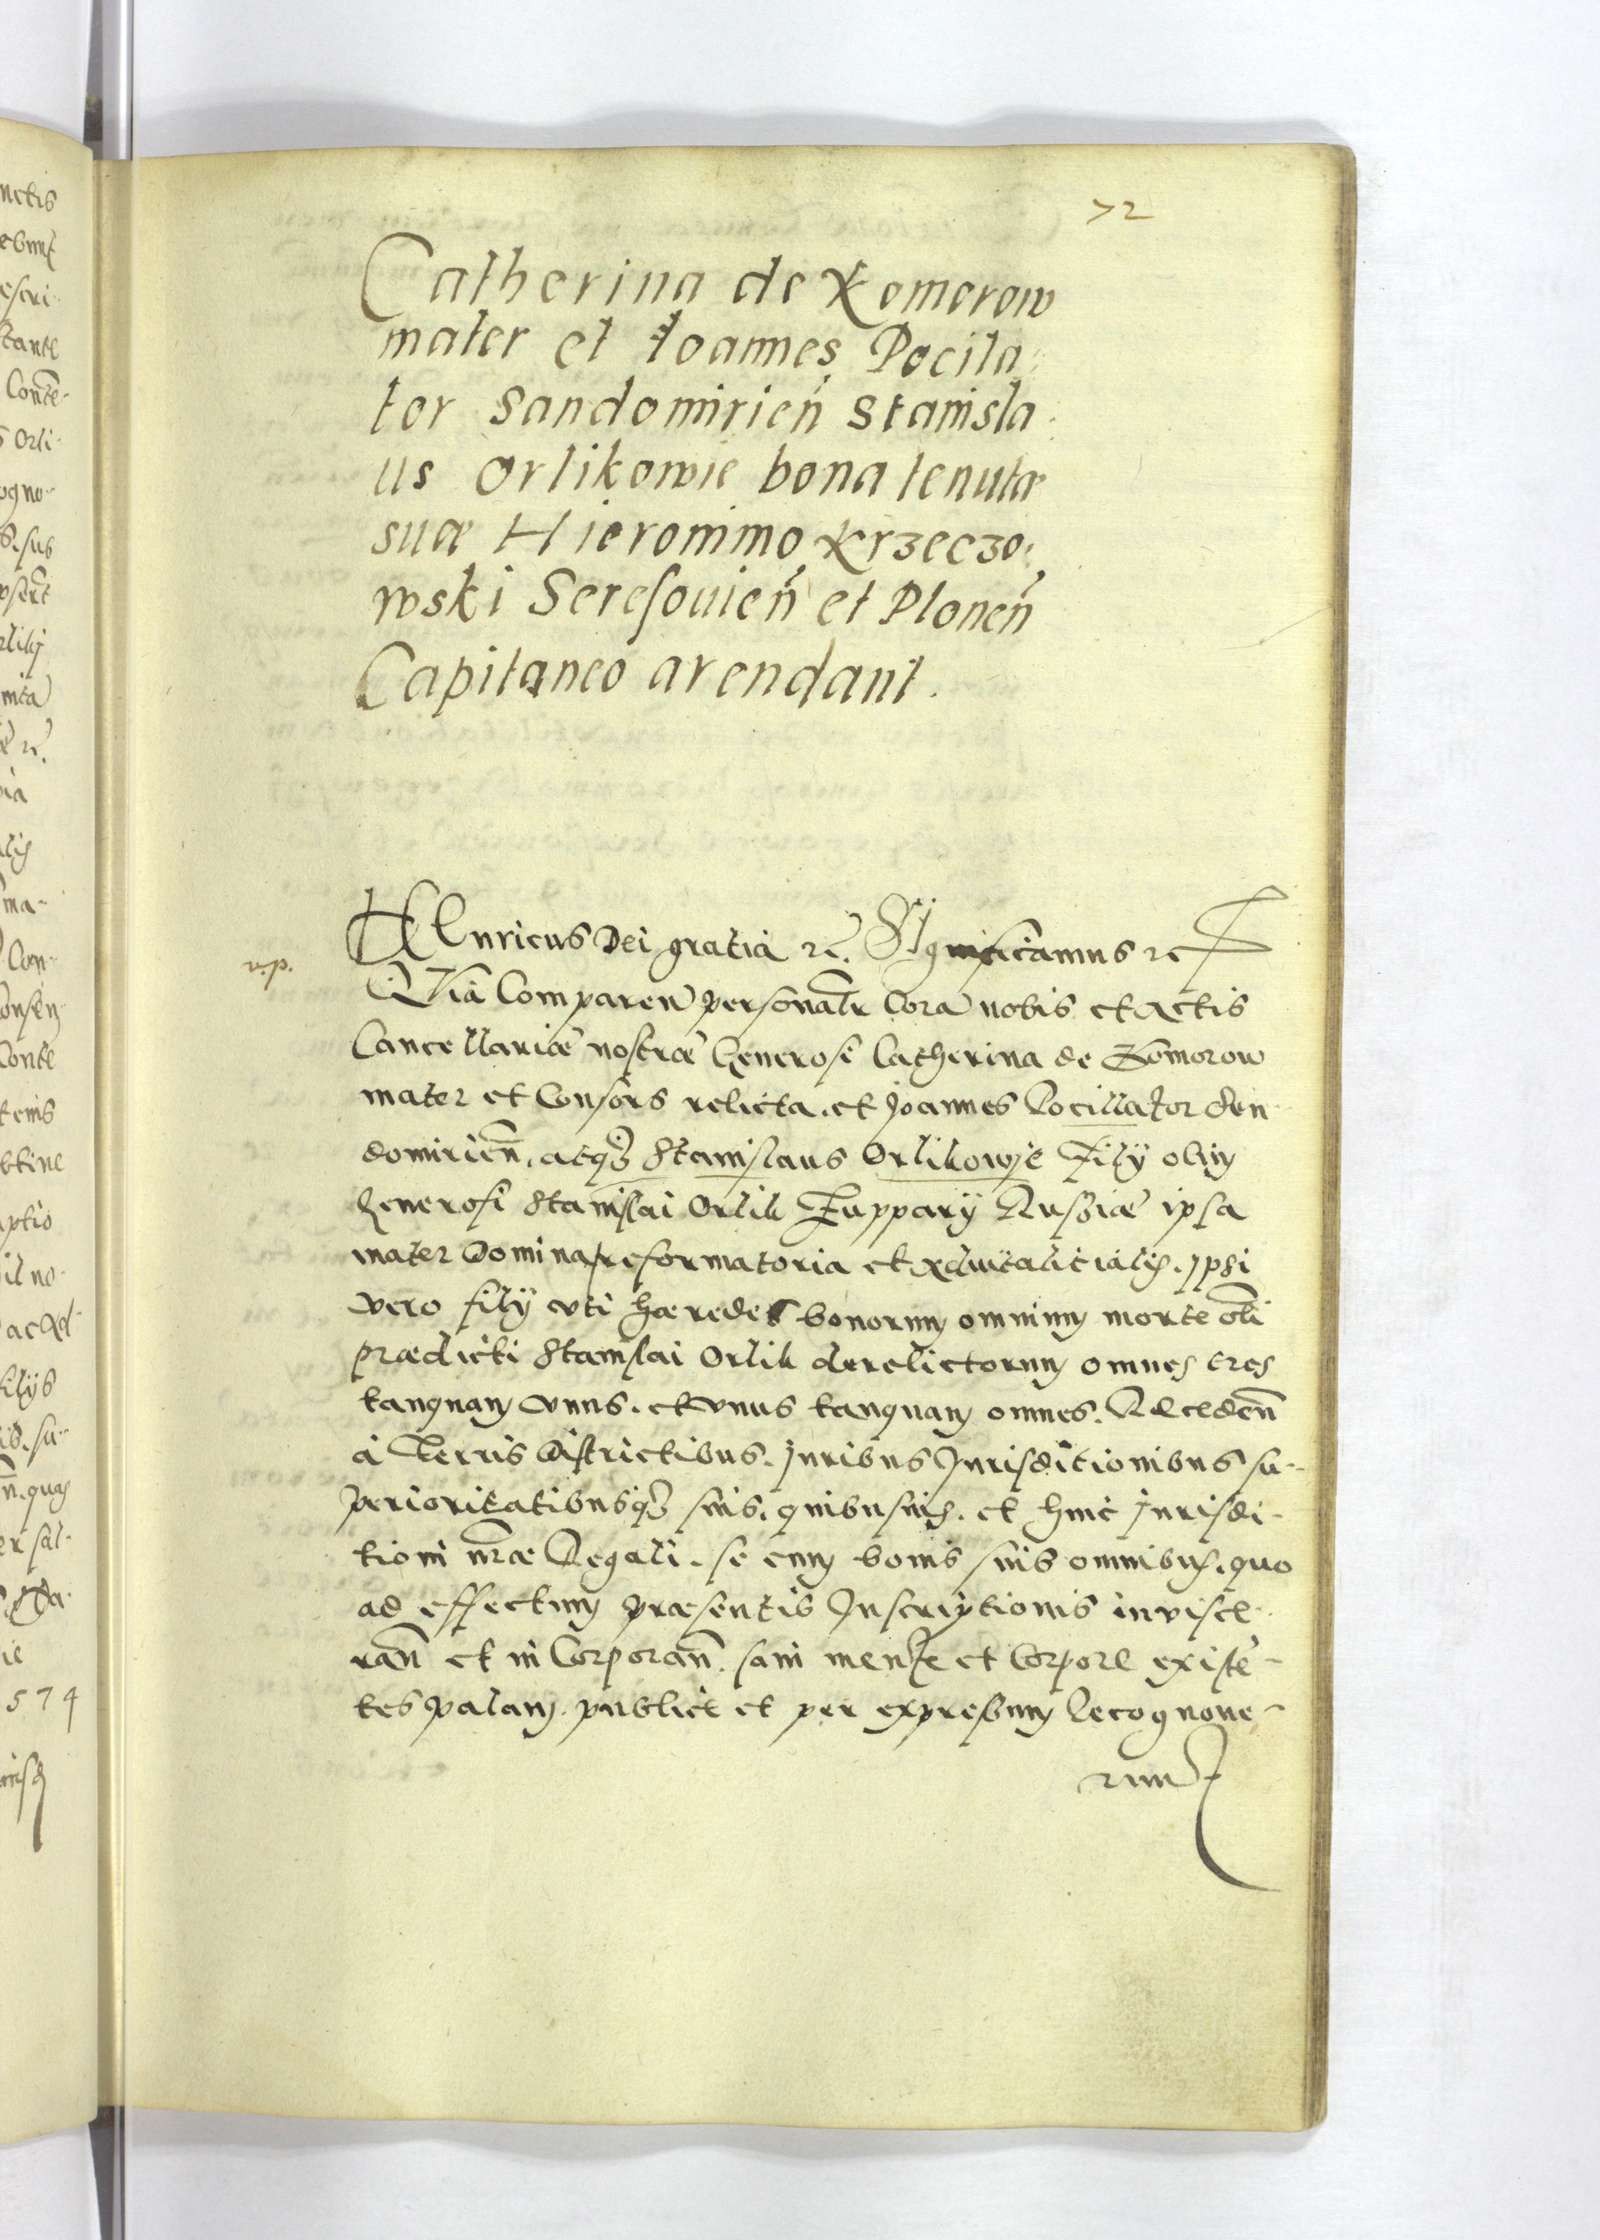 72
Catherina de Komorow
mater et Ioannes Pocila
tor Sandomirien Stanisla
us Orlikowie bona tenutæ
suæ Hieronimo Krzeczo
wski Seresouien et Plonen
Capitaneo arendant.
HEnricus Dei gratia rc. SIgnificamus rc
v.p.
QVia Comparen personalr Cora nobis et Actis
Cancellariæ nostræ Generosi Catherina de Komorow
mater et Consors relicta. et Joannes Pocillator Sen
domirien. atq3 Stanislaus Orlikowie Filÿ olim
Generosi Stanislai Orlik Zupparÿ Russiæ ipsa
mater Domina reformatoria et Aduitalitialis. Ipsi
vero filÿ vti hæredes bonorum omnium morte oli
prædicti Stanislai Orlik derelictorum omnes tres
tanquam vnus. et vnus tanquam omnes. Recedен
à Terris Districtibus. Iuribus Iurisditionibus su-
perioritatibusq3 suis. quibusuis. et huic Iurisdi-
tioni nræ Regali. se cum bonis suis omnibus. quo
ad effectum præsentis Inscriptionis inviscе-
ran et in Corporan. sani mente et Corpore existe-
tes palam. publice et per expressum Recognoue-
runt